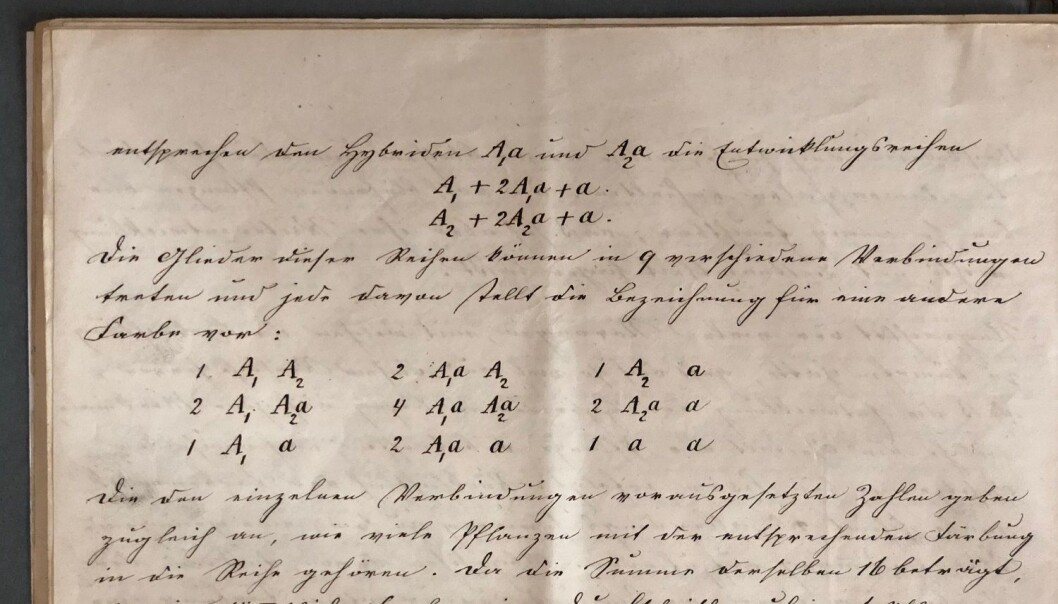 entsprechen den Hybriden A₁a und A₂a die Entwicklungsreihen
A₁ + 2A₁a + a.
A₂ + 2A₂a + a.
Die Glieder dieser Reihen können in 9 verschiedene Verbindungen
treten und jede davon stellt die Bezeichnung für eine andere
Farbe vor:
1 A₁ A₂ 2 A₁a A₂ 1 A₂ a
2 A₁ A₂a 4 A₁a A₂a 2 A₂a a
1 A₁ a 2 A₁a a 1 a a
Die den einzelnen Verbindungen vorausgesetzten Zahlen geben
zugleich an, wie viele Pflanzen mit der entsprechenden Färbung
in die Reihe gehören. Da die Summe derselben 16 beträgt,